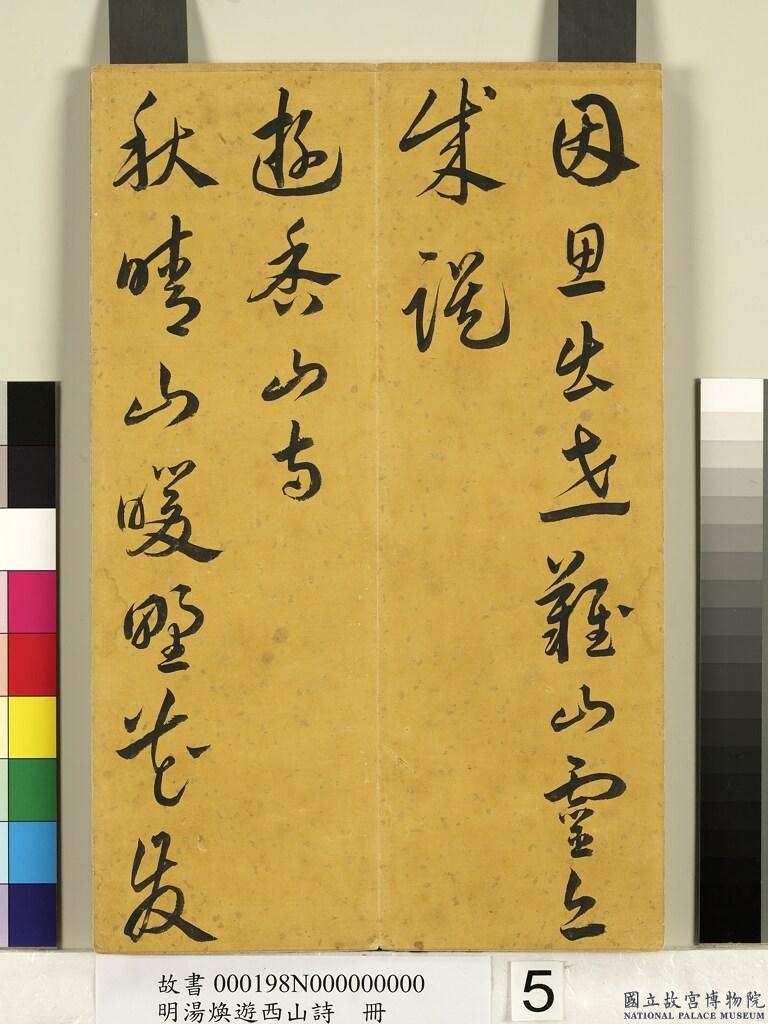 因思出世難山靈亦
成誤
遊香山寺
秋晴山暖野花發
故書 000198N000000000
明湯煥遊西山詩 冊
5
國立故宮博物院
NATIONAL PALACE MUSEUM